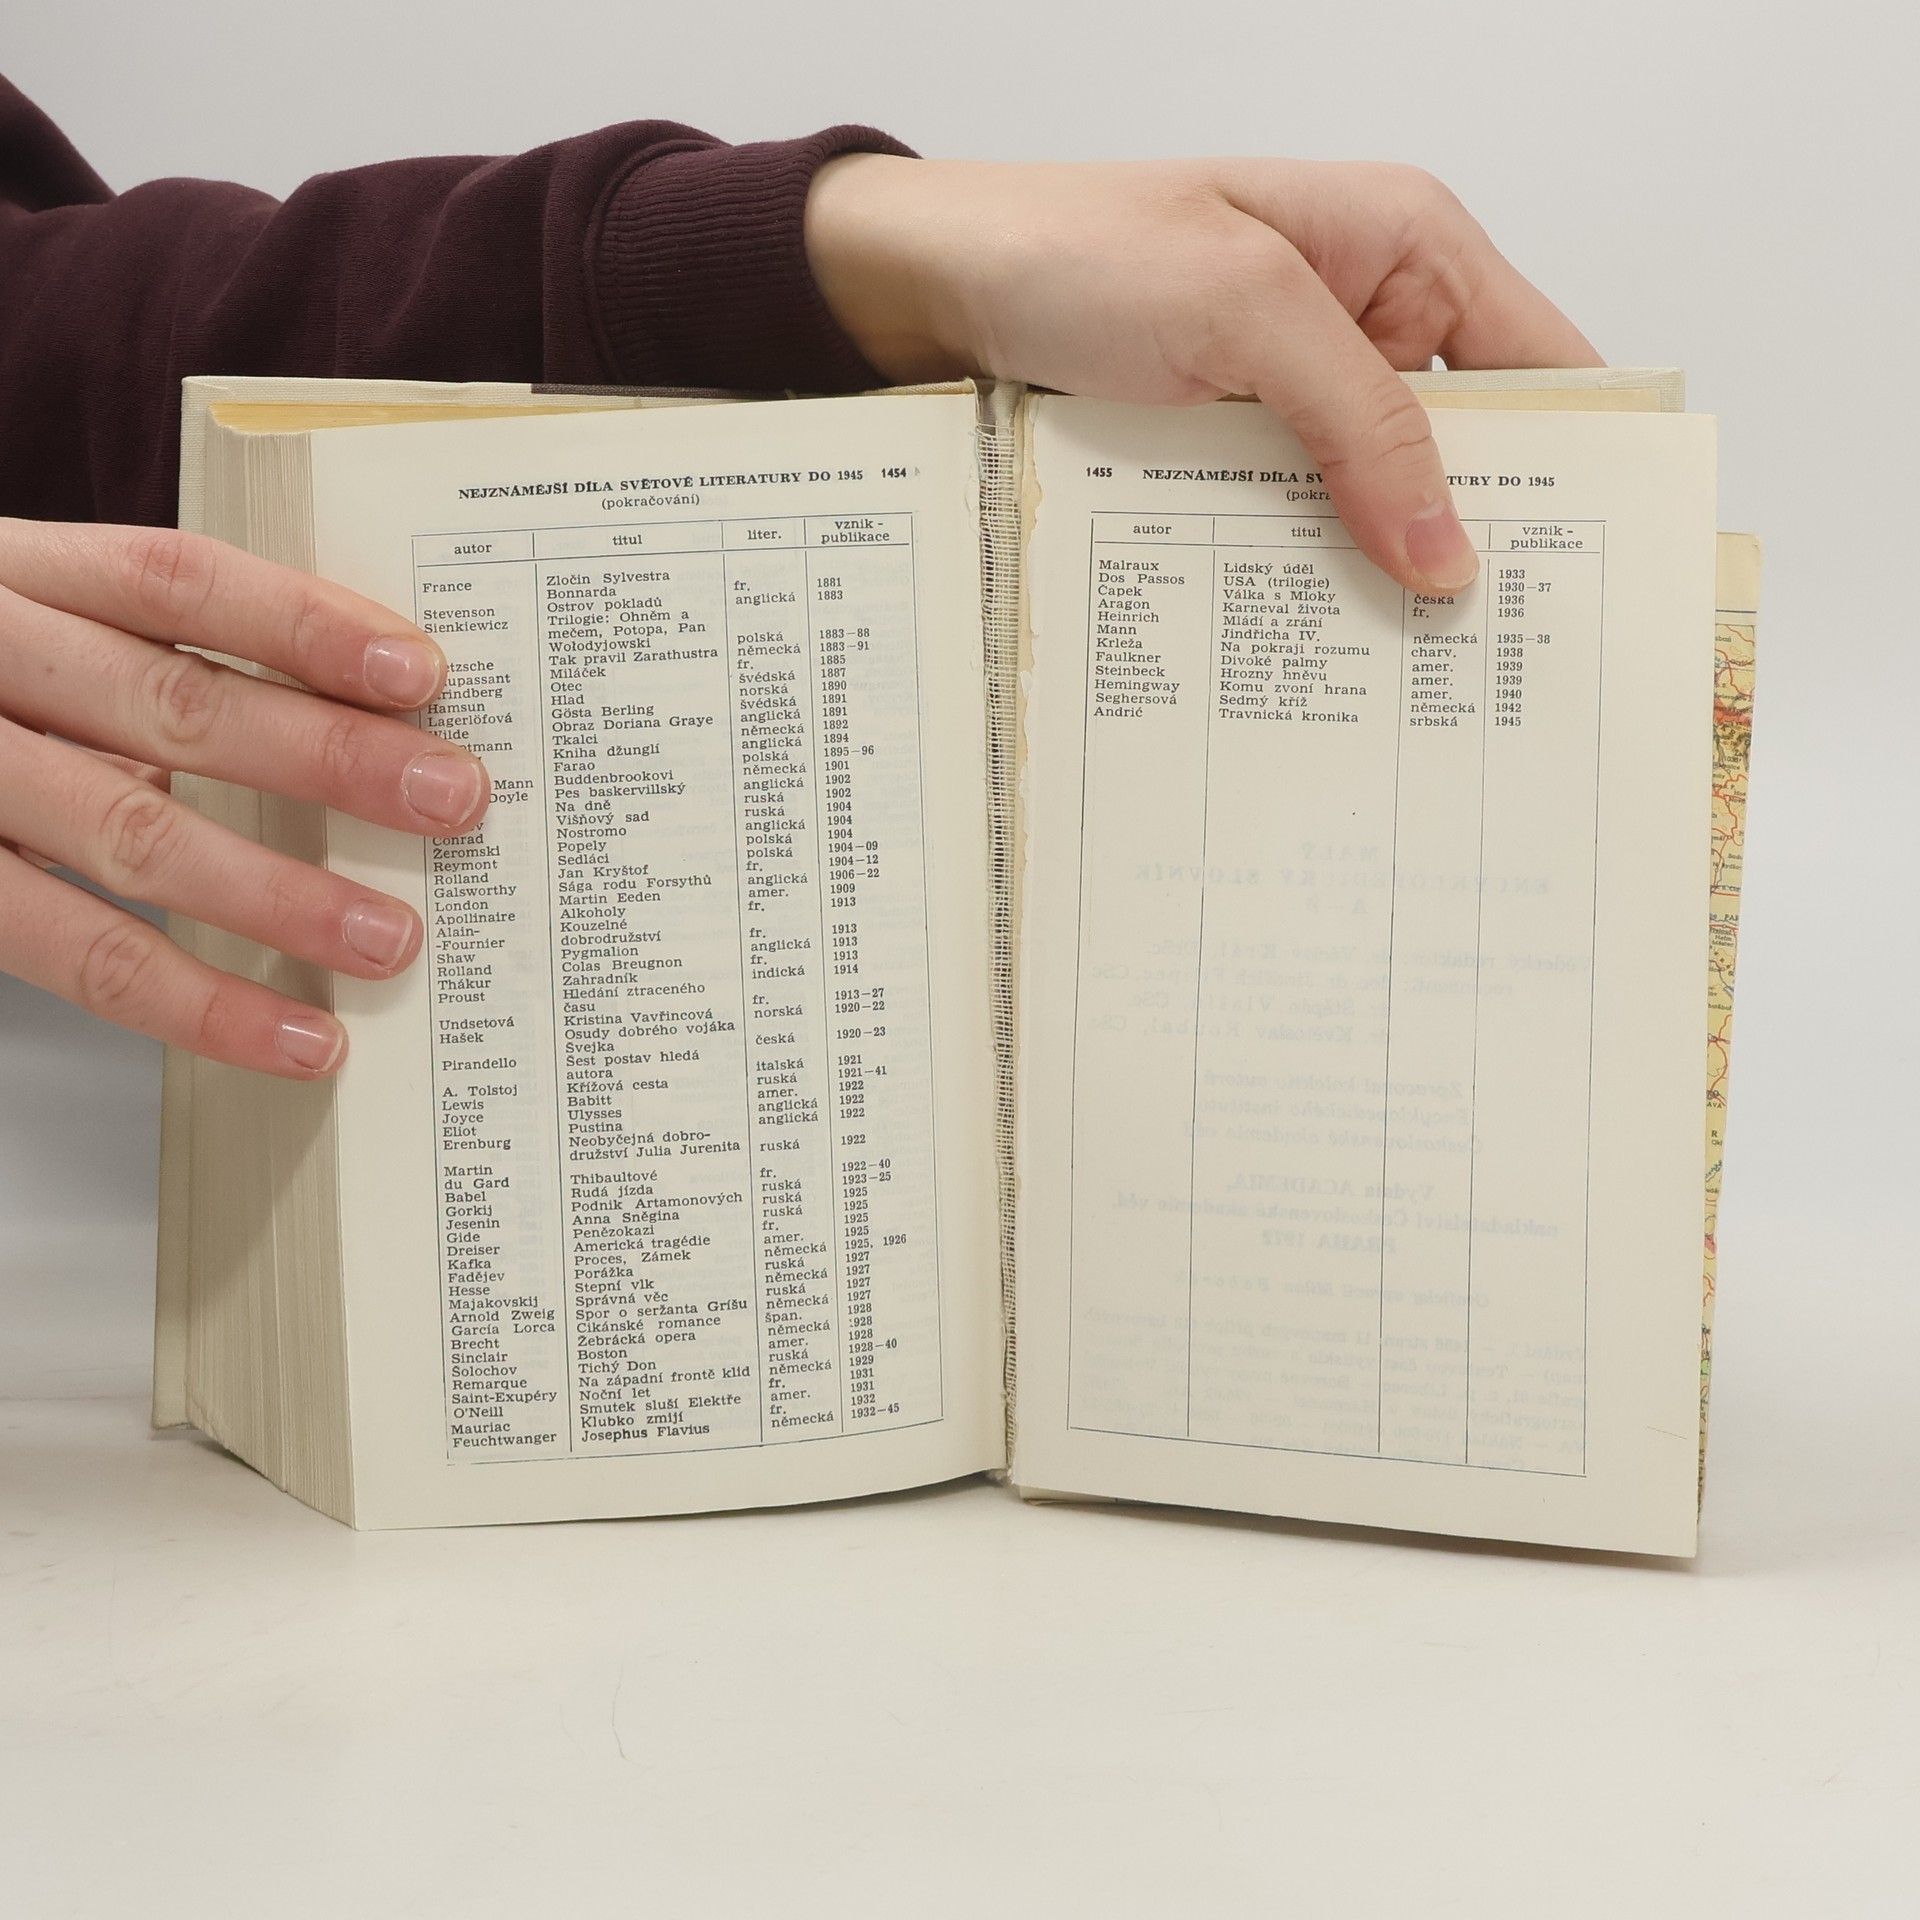 NEJZNÁMĚJŠÍ DÍLA SVĚTOVÉ LITERATURY DO 1945 1454
(pokračování)
autor titul liter. vznik -
publikace
France Zločin Sylvestra
Bonnarda fr. 1881
Stevenson Ostrov pokladů anglická 1883
Sienkiewicz Trilogie: Ohněm a
mečem, Potopa, Pan
Wołodyjowski polská 1883–88
etzsche Tak pravil Zarathustra německá 1883–91
upassant Miláček fr. 1885
rindberg Otec švédská 1887
Hamsun Hlad norská 1890
Lagerlöfová Gösta Berling švédská 1891
Wilde Obraz Doriana Graye anglická 1891
ptmann Tkalci německá 1892
Kniha džunglí anglická 1894
Farao polská 1895–96
Mann Buddenbrookovi německá 1901
Doyle Pes baskervillský anglická 1902
Na dně ruská 1902
Višňový sad ruská 1904
Conrad Nostromo anglická 1904
Żeromski Popely polská 1904
Reymont Sedláci polská 1904–09
Rolland Jan Kryštof fr. 1904–12
Galsworthy Sága rodu Forsythů anglická 1906–22
London Martin Eeden amer. 1909
Apollinaire Alkoholy fr. 1913
Alain- Kouzelné
-Fournier dobrodružství fr. 1913
Shaw Pygmalion anglická 1913
Rolland Colas Breugnon fr. 1913
Thákur Zahradník indická 1914
Proust Hledání ztraceného
času fr. 1913–27
Undsetová Kristina Vavřincová norská 1920–22
Hašek Osudy dobrého vojáka
Švejka česká 1920–23
Pirandello Šest postav hledá
autora italská 1921
A. Tolstoj Křížová cesta ruská 1921–41
Lewis Babitt amer. 1922
Joyce Ulysses anglická 1922
Eliot Pustina anglická 1922
Erenburg Neobyčejná dobro-
družství Julia Jurenita ruská 1922
Martin
du Gard Thibaultové fr. 1922–40
Babel Rudá jízda ruská 1923–25
Gorkij Podnik Artamonových ruská 1925
Jesenin Anna Sněgina ruská 1925
Gide Penězokazi fr. 1925
Dreiser Americká tragédie amer. 1925
Kafka Proces, Zámek německá 1925, 1926
Fadějev Porážka ruská 1927
Hesse Stepní vlk německá 1927
Majakovskij Správná věc ruská 1927
Arnold Zweig Spor o seržanta Gríšu německá 1927
García Lorca Cikánské romance špan. 1928
Brecht Žebrácká opera německá 1928
Sinclair Boston amer. 1928
Šolochov Tichý Don ruská 1928–40
Remarque Na západní frontě klid německá 1929
Saint-Exupéry Noční let fr. 1931
O'Neill Smutek sluší Elektře amer. 1931
Mauriac Klubko zmijí fr. 1932
Feuchtwanger Josephus Flavius německá 1932–45
1455 NEJZNÁMĚJŠÍ DÍLA SV TURY DO 1945
(pokra
autor titul vznik -
publikace
Malraux Lidský úděl 1933
Dos Passos USA (trilogie) 1930–37
Čapek Válka s Mloky česká 1936
Aragon Karneval života fr. 1936
Heinrich Mládí a zrání
Mann Jindřicha IV. německá 1935–38
Krleža Na pokraji rozumu charv. 1938
Faulkner Divoké palmy amer. 1939
Steinbeck Hrozny hněvu amer. 1939
Hemingway Komu zvoní hrana amer. 1940
Seghersová Sedmý kříž německá 1942
Andrić Travnická kronika srbská 1945